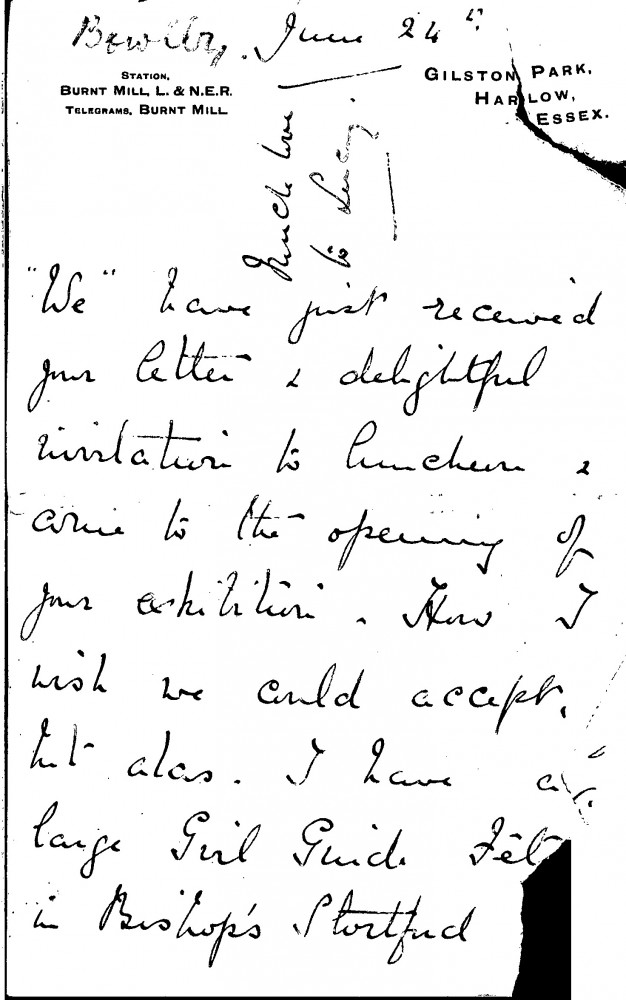 Bowlby. June 24th
STATION,
BURNT MILL, L. & N.E.R.
TELEGRAMS, BURNT MILL
GILSTON PARK,
HARLOW,
ESSEX.
Much love
to
"We" have just received
your letter & delightful
invitation to luncheon &
come to the opening of
your exhibition. How I
wish we could accept,
but alas. I have a
large Girl Guide Fête
in Bishop's Stortford